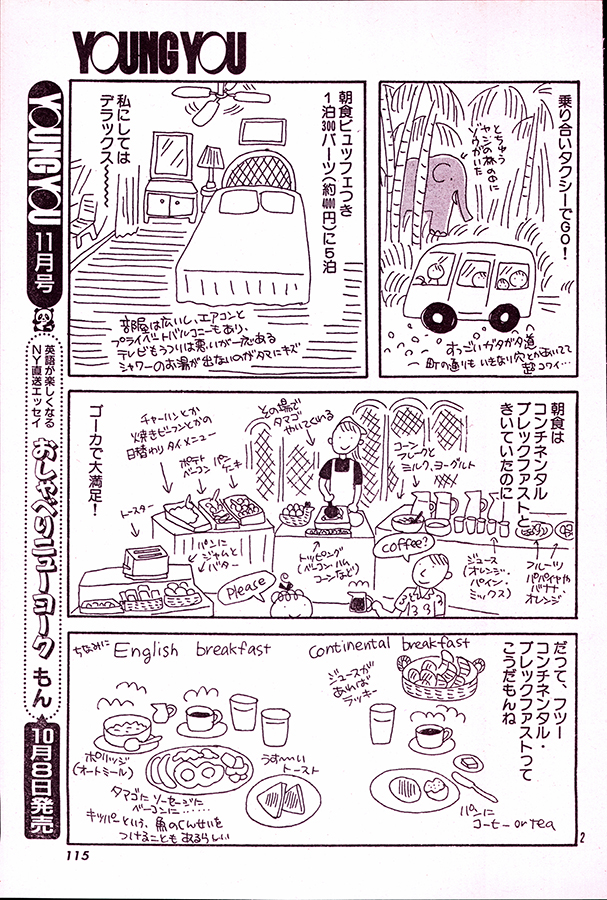 YOUNG YOU
乗り合いタクシーでGO!
とちゅう
ヤシの林の中に
ゾウがいた
すっごいガタガタ道
町の通りもいきなり穴とかあいてて
超コワイ…
朝食ビュッフェつき
1泊300バーツ(約4000円)に5泊
私にしては
デラックス〜
部屋は広いし、エアコンと
プライベートバルコニーもあり、
テレビもうつりは悪いが一応ある
シャワーのお湯が出ないのがタマにキズ
朝食は
コンチネンタル
ブレックファストと
きいていたのに
コーン
フレークと
ミルク、ヨーグルト
その場で
タマゴ
やいてくれる
チャーハンとか
焼きビーフンとかの
日替わりタイメニュー
ポテト
ベーコン
パン
ケーキ
トースター
パンに
ジャムと
バター
トッピング
(ベーコン、ハム
コーンなど)
coffee?
Please
ジュース
(オレンジ・
パイン・
ミックス)
フルーツ
パパイヤや
バナナ
オレンジ
ゴーカで大満足!
だって、フツー
コンチネンタル・
ブレックファストって
こうだもんね
ちなみに
English breakfast
continental breakfast
ジュースが
あれば
ラッキー
ポリッジ
(オートミール)
うす〜い
トースト
タマゴに ソーセージに
ベーコンに……
キッパーという、魚のくんせいを
つけることもあるらしい
パンに
コーヒー or tea
2
YOUNG YOU
11月号
英語が楽しくなる
NY直送エッセイ
おしゃべりニューヨーク
もん
★10月8日発売
115